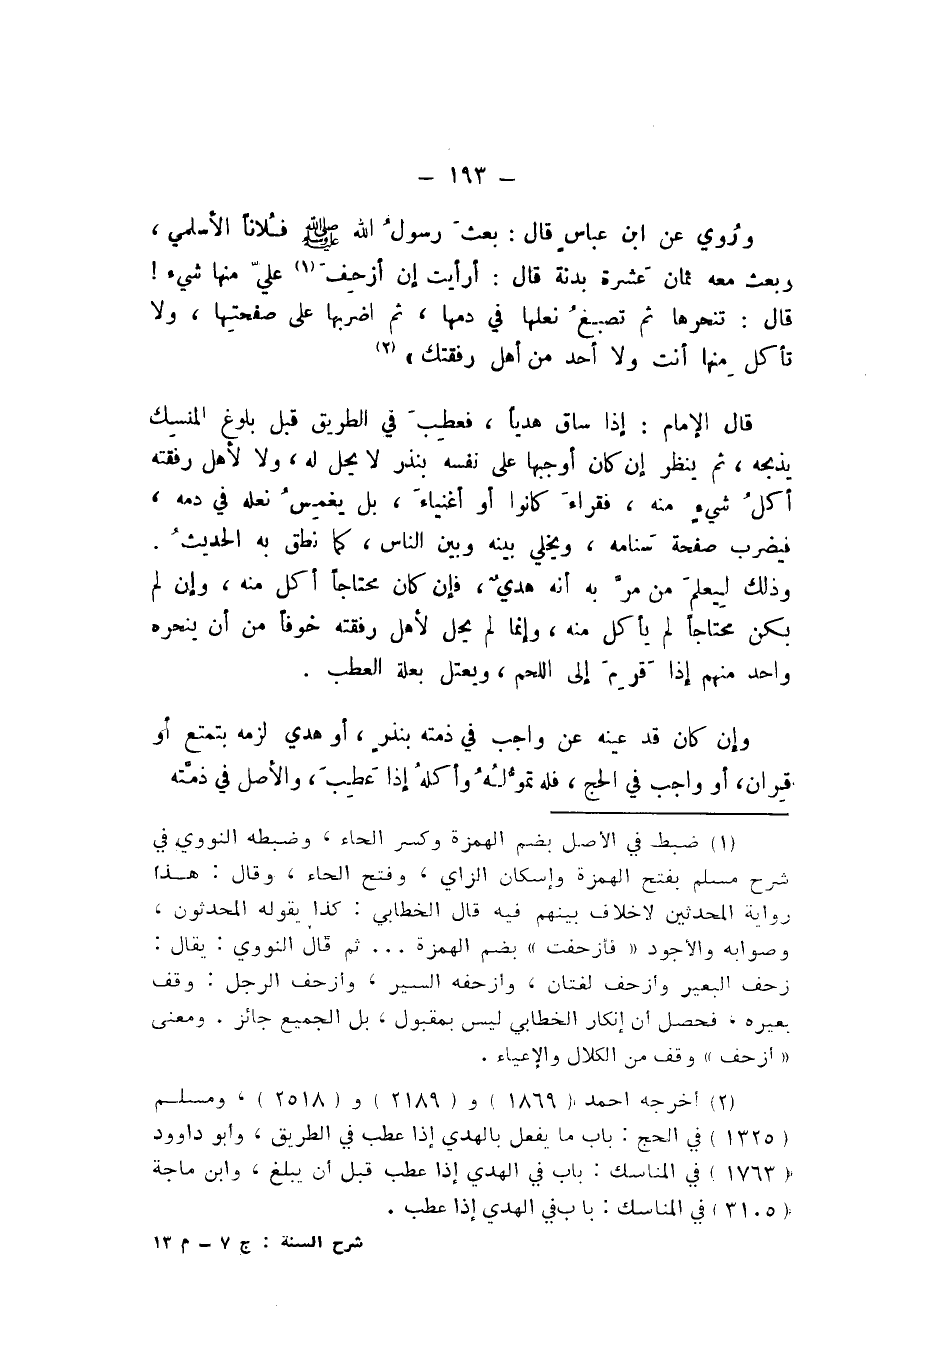 – ١٩٣ –
ورُوي عن ابن عباسٍ قال : بعثَ رسولُ الله ﷺ فُلاناً الأسلمي ،
وبعث معه ثمانَ عَشرة بدنة قال : أرأيت إن أزحِفَ (١) عليّ منها شيء !
قال : تنحرها ثم تصبغُ نعلها في دمها ، ثم اضربها على صفحتها ، ولا
تأكل مِنها أنت ولا أحد من أهل رفقتك » (٢)
قال الإمام : إذا ساق هدياً ، فعطِبَ في الطريق قبل بلوغ المنسِك
يذبحه ، ثم ينظر إن كان أوجبها على نفسه بنذر لا يحل له ، ولا لأهل رفقته
أكلُ شيءٍ منه ، فقراءَ كانوا أو أغنياءَ ، بل يغمِسُ نعله في دمه ،
فيضرب صفحة سَنامه ، ويخلي بينه وبين الناس ، كما نطق به الحديثُ .
وذلك لِيعلمَ من مرَّ به أنه هديٌ ، فإن كان محتاجاً أكل منه ، وإن لم
يكن محتاجاً لم يأكل منه ، وإنما لم يحل لأهل رفقته خوفاً من أن ينحره
واحد منهم إذا قَرِمَ إلى اللحم ، ويعتل بعلة العطب .
وإن كان قد عينه عن واجب في ذمته بنذرٍ ، أو هدي لزمه بتمتع أو
قِران، أو واجب في الحج ، فله تموُّلُهُ وأكلهُ إذا عَطِبَ ، والأصل في ذمَّته
(١) ضبط في الأصل بضم الهمزة وكسر الحاء ، وضبطه النووي في
شرح مسلم بفتح الهمزة وإسكان الزاي ، وفتح الحاء ، وقال : هذا
رواية المحدثين لاخلاف بينهم فيه قال الخطابي : كذا يقوله المحدثون ،
وصوابه والأجود « فأزحفت » بضم الهمزة ... ثم قال النووي : يقال :
زحف البعير وأزحف لغتان ، وأزحفه السير ، وأزحف الرجل : وقف
بعيره ، فحصل أن إنكار الخطابي ليس بمقبول ، بل الجميع جائز . ومعنى
« أزحف » وقف من الكلال والإعياء .
(٢) أخرجه احمد ( ١٨٦٩ ) و ( ٢١٨٩ ) و ( ٢٥١٨ ) ، ومسلم
( ١٣٢٥ ) في الحج : باب ما يفعل بالهدي إذا عطب في الطريق ، وأبو داوود
( ١٧٦٣ ) في المناسك : باب في الهدي إذا عطب قبل أن يبلغ ، وابن ماجة
( ٣١٠٥ ) في المناسك : باب في الهدي إذا عطب .
شرح السنة : ج ٧ – م ١٣